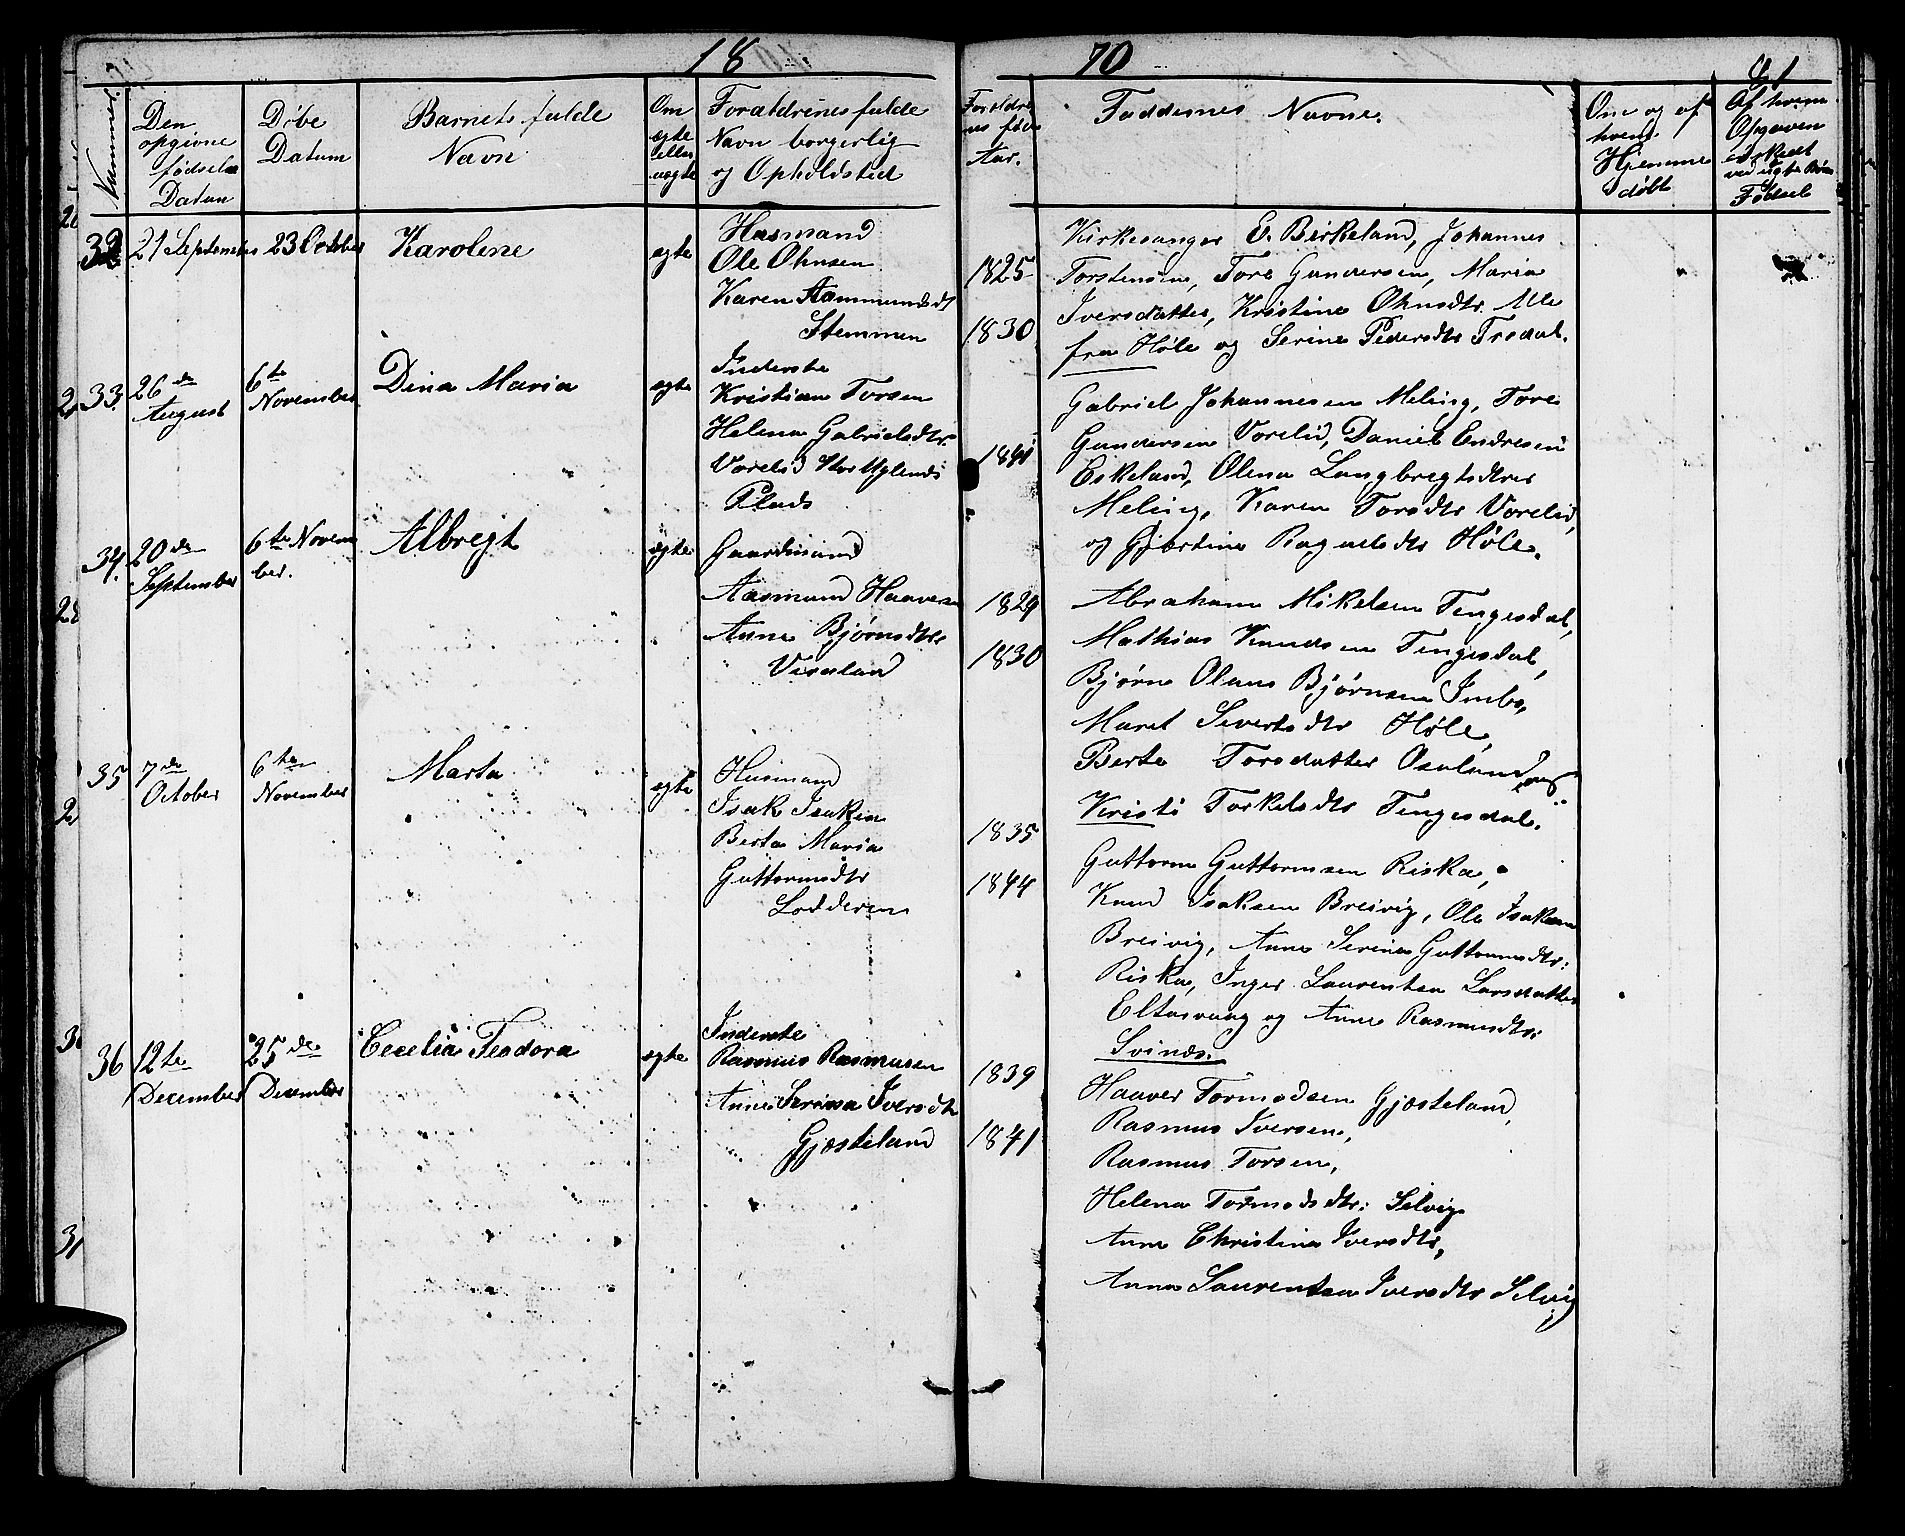 18 70
41
Nummer.
Den opgivne fødsels Datum
Døbe Datum
Barnets fulde Navn
Om ægte eller uægte
Forældrenes fulde Navn borgerlig og Opholdsted
Forældrenes føde Aar.
Faddernes Navne.
Om og af hvem Hjemme døbt
Af hvem Opgaven
ved uægte Børns Fødsel
32 21 September 23 October Karolene ægte
Husmand
Ole Ohnsen
Karen Aammundsdt
Stemmen
1825
1830
Kirkesanger E. Birkeland, Johannes
Torstensen, Tore Gundersen, Maria
Iversdatter, Kristine Ohnsdtr. Alle
fra Høle og Serine Pedersdtr Tredal.
33. 26de August 6te November Dina Maria ægte
Inderste
Kristian Torsen
Helena Gabrielsdtr
Vorelid
Plads
1841
Gabriel Johannesen Meling, Tore
Gundersen Vorelid, Daniel Endresen
Eskeland, Olena Langbregtsdtr
Meling, Karen Torsdtr Vorelid,
og Gjertine Ragnaldsdtr Høle.
34. 20de September 6te November. Albregt ægte
Gaardmand
Aasmund Haaversen
Anne Bjørnsdtr
Viseland
1829
1830
Abraham Mikelsen Tengesdal,
Mathias Knudsen Tengesdal,
Bjørn Olaus Bjørnsen Imbs,
Maret Sivertsdtr Høle,
Berte Torsdatter Osaland
Kristi Torkelsdtr Tengesdal.
35 7de October 6te November Marta ægte
Husmand
Isak Isaksen
Berta Maria
Guttormsdtr
Lodderen
1835
1844
Guttorm Guttormsen Riska,
Knud Isaksen Breivig, Ole Isaksen
Breivig, Anne Serine Guttormsdtr:
Riska, Inger Laurentsa Larsdatter
Eltarvaag og Anne Rasmusdtr:
Svinds.
36 12te December 25de December Cecelia Teodora ægte
Inderste
Rasmus Rasmusen
Anne Serina Iversdtr
Gjæsteland
1839
1841
Haaver Tormodsen Gjesteland,
Rasmus Iversen,
Rasmus Torsen,
Helena Tormodsdtr: Selvig
Anne Christine Iversdtr,
Anne Laurentsa Iversdtr Selvig